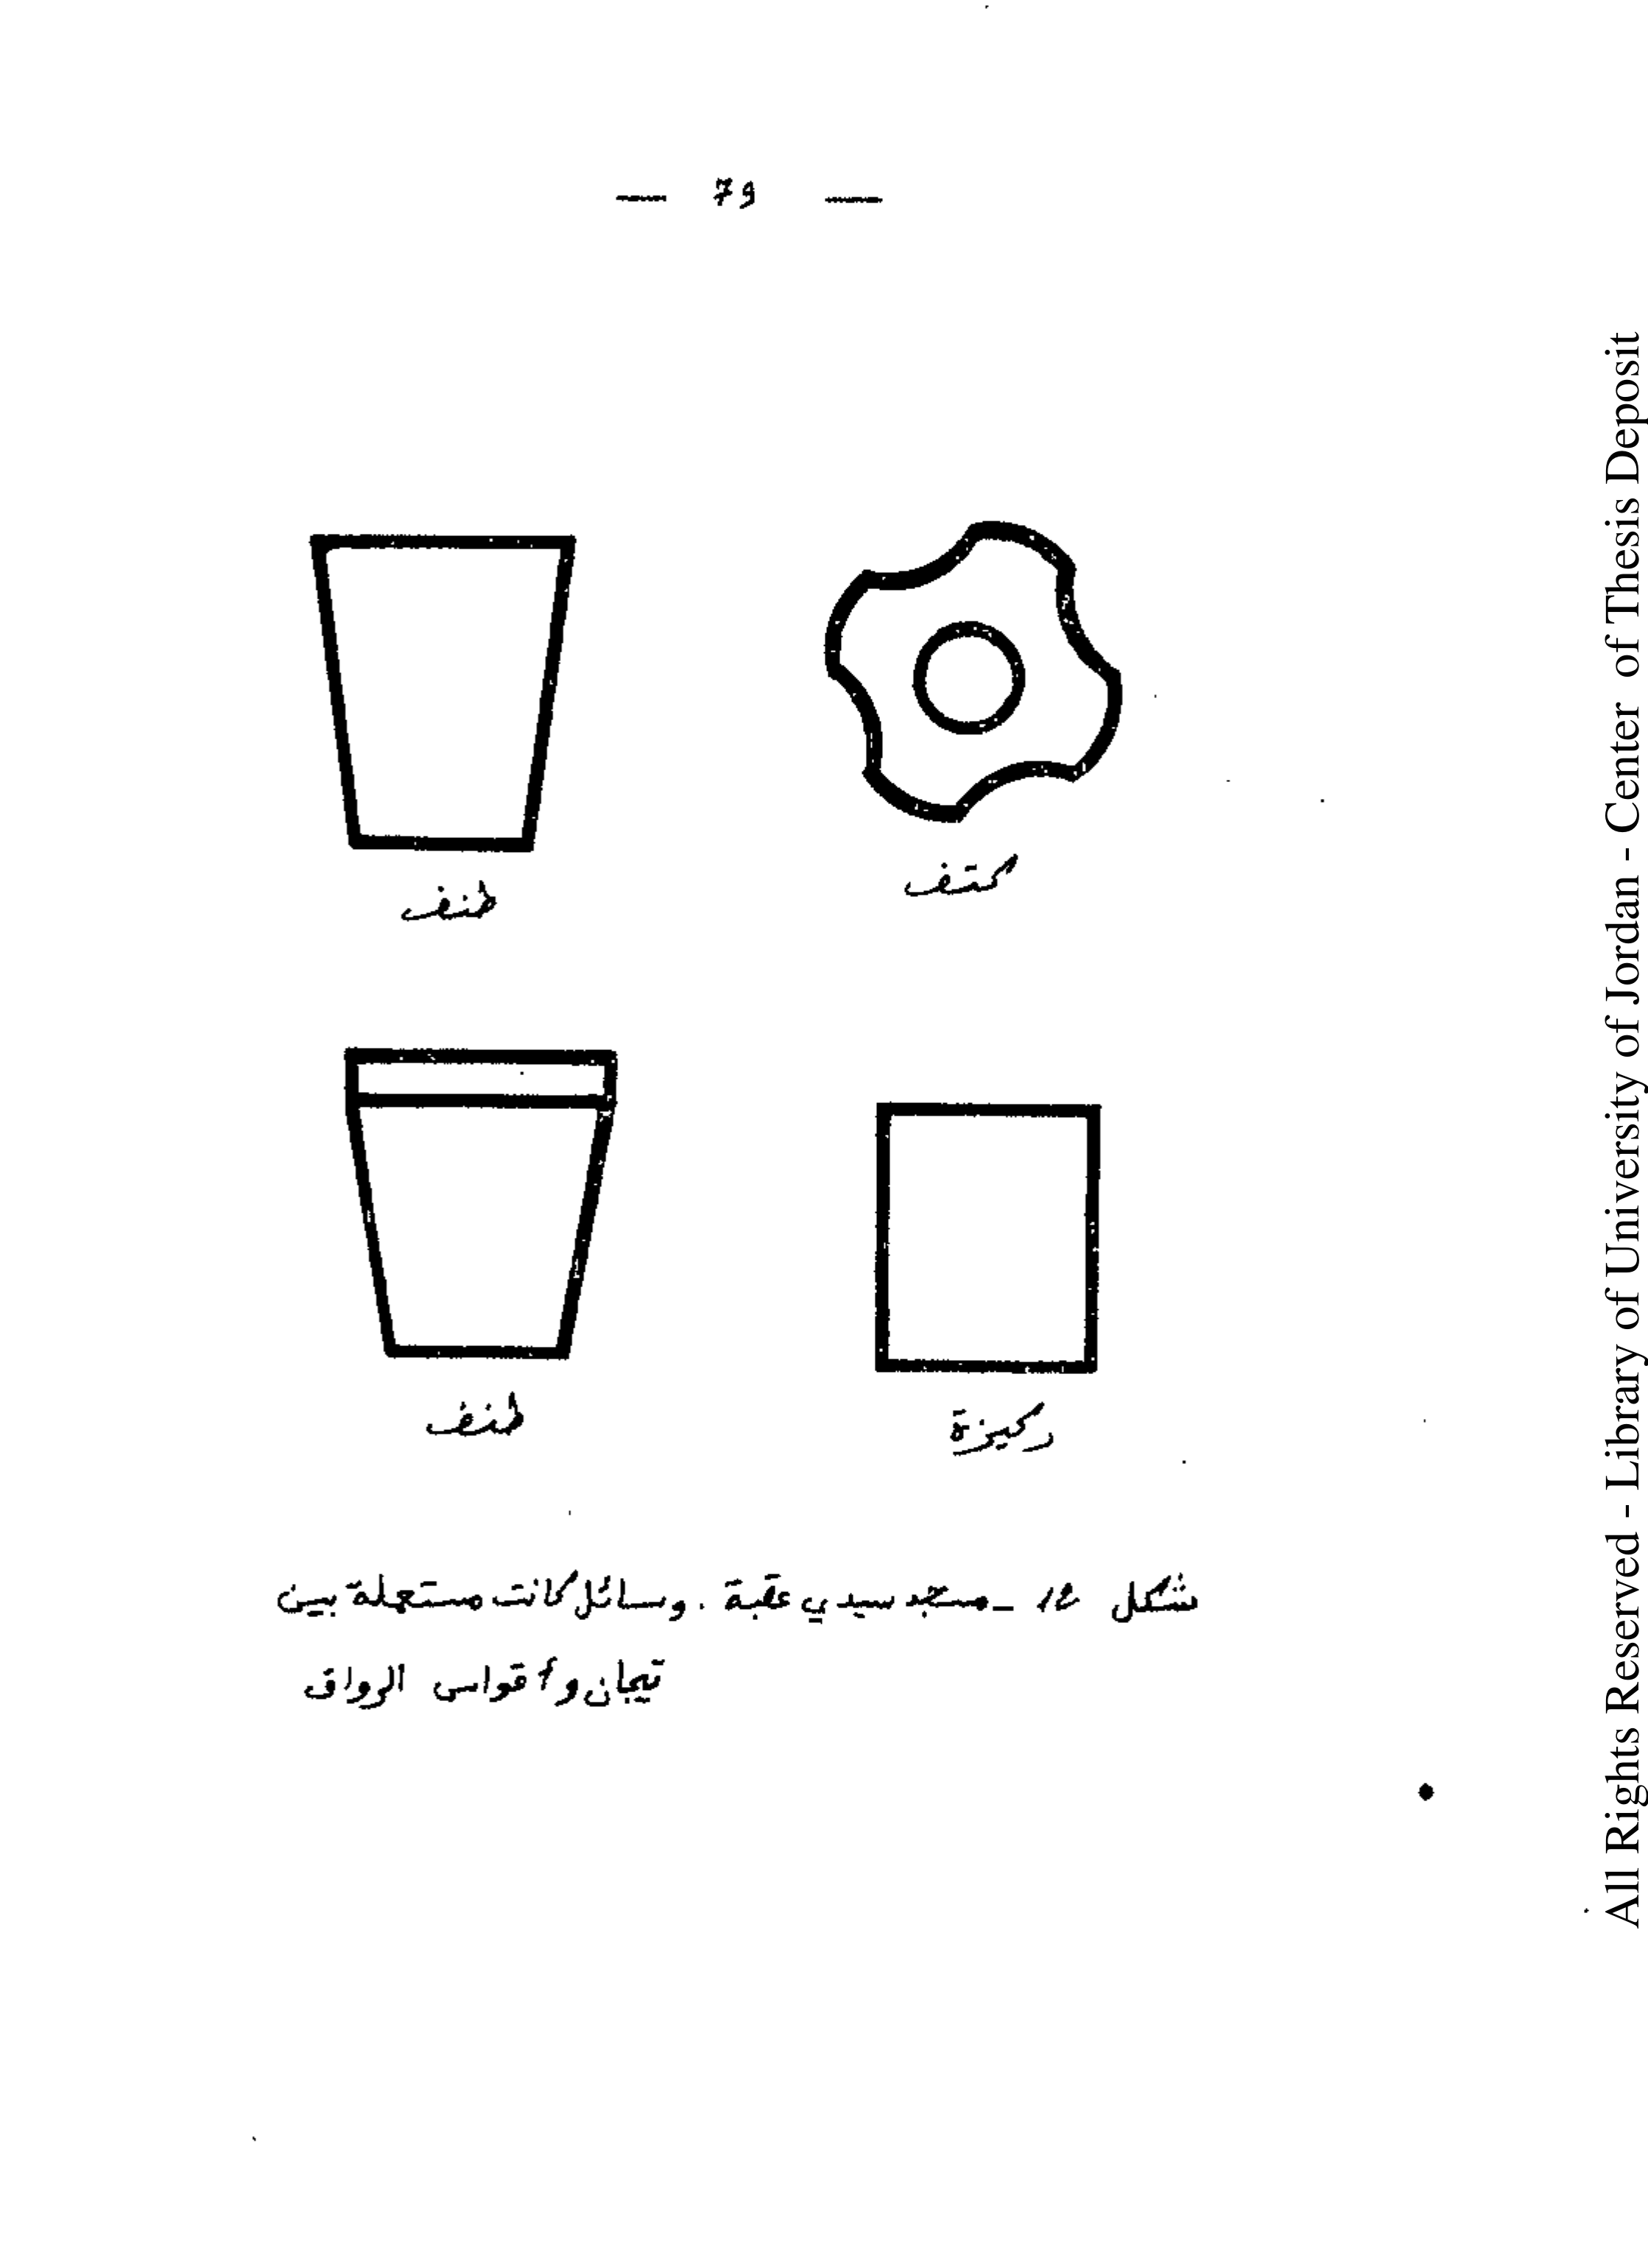 — 79 —
كتف
طنف
ركيزة
طنف
شكل 12 ـ مسجد سيدي عقبة . وسائل كانت مستعملة بين
تيجان وأقواس الرواق
All Rights Reserved - Library of University of Jordan - Center of Thesis Deposit